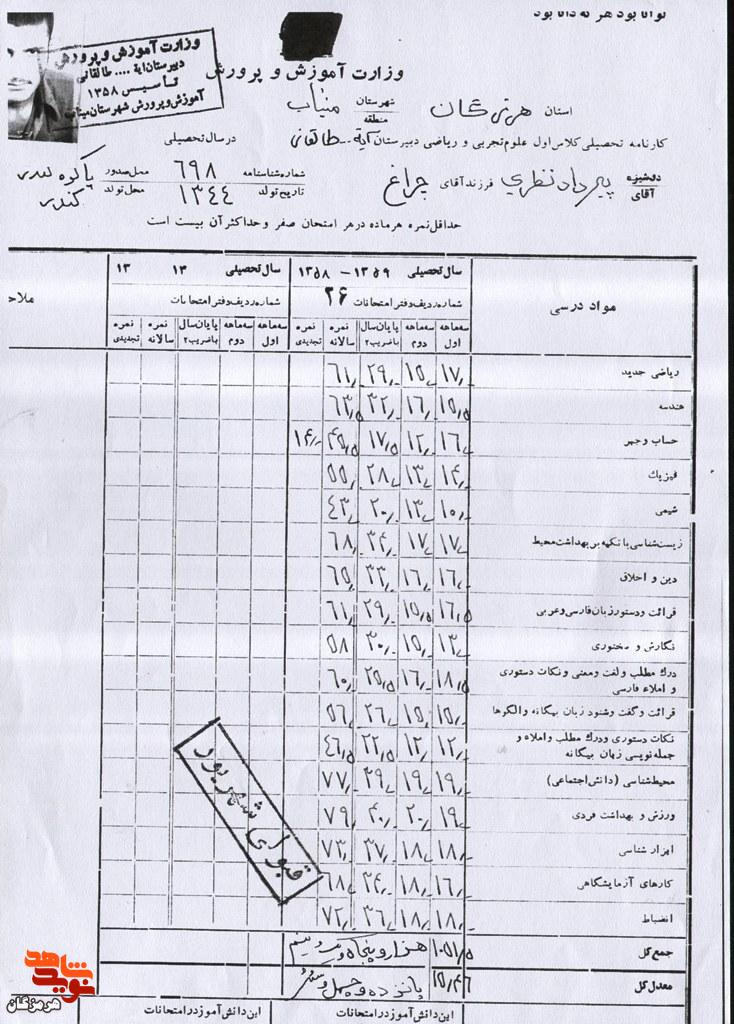 توانا بود هر که دانا بود
وزارت آموزش و پرورش
دبیرستان آیة .... طالقانی
تأسیس ۱۳۵۸
آموزش و پرورش شهرستان میناب
وزارت آموزش و پرورش
استان هرمزگان شهرستان منطقه میناب
کارنامه تحصیلی کلاس اول علوم تجربی و ریاضی دبیرستان آیة... طالقانی در سال تحصیلی
دوشیزه آقای پیرداد نظری فرزند آقای چراغ شماره شناسنامه ۶۹۸ محل صدور
تاریخ تولد ۱۳۴۴ محل تولد
حداقل نمره هر ماده در هر امتحان صفر و حداکثر آن بیست است
مواد درسی سال تحصیلی ۱۳۵۹ - ۱۳۵۸ سال تحصیلی ۱۳ ۱۳
شماره ردیف دفتر امتحانات ۲۶ شماره ردیف دفتر امتحانات ملاح
سه ماهه اول سه ماهه دوم پایان سال با ضریب ۲ نمره سالانه نمره تجدیدی سه ماهه اول سه ماهه دوم پایان سال با ضریب ۲ نمره سالانه نمره تجدیدی
ریاضی جدید ۱۷/ ۱۵/ ۲۹/ ۶۱/
هندسه ۱۵/۵ ۱۶/ ۳۲/ ۶۳/۵
حساب و جبر ۱۶/ ۱۲/ ۱۷/۵ ۴۵/۵ ۱۴/
فیزیک ۱۴/ ۱۳/ ۲۸/ ۵۵/
شیمی ۱۰/ ۱۳/ ۲۰/ ۴۳/
زیست شناسی با تکیه بر بهداشت محیط ۱۷/ ۱۷/ ۳۴/ ۶۸/
دین و اخلاق ۱۶/ ۱۶/ ۳۳/ ۶۵/
قرائت و دستور زبان فارسی و عربی ۱۶/۵ ۱۵/۵ ۲۹/ ۶۱/
نگارش و سخنوری ۱۳/ ۱۵/ ۳۰/ ۵۸
درک مطلب و لغت و معنی و نکات دستوری
و املاء فارسی ۱۸/۵ ۱۶/ ۲۵/۵ ۶۰/
قرائت و گفت و شنود زبان بیگانه و الگوها ۱۵/ ۱۵/ ۲۶/ ۵۶/
نکات دستوری و درک مطلب و املاء و
جمله نویسی زبان بیگانه ۱۲/ ۱۲/ ۲۲/۵ ۴۶/۵
محیط شناسی (دانش اجتماعی) ۱۹/ ۱۹/ ۳۹/ ۷۷/
ورزش و بهداشت فردی ۱۹/ ۲۰/ ۴۰/ ۷۹/
ابزار شناسی ۱۸/ ۱۸/ ۳۷/ ۷۳/
کارهای آزمایشگاهی ۱۶/ ۱۸/ ۳۴/ ۶۸/
انضباط ۱۸/ ۱۸/ ۳۶/ ۷۲/
قبولی شهریور
جمع کل ۱۰۵۱/۵ هزار و پنجاه و یک و نیم
معدل کل ۱۵/۴۶ پانزده و چهل و شش
این دانش آموز در امتحانات این دانش آموز در امتحانات
نوید شاهد
هرمزگان